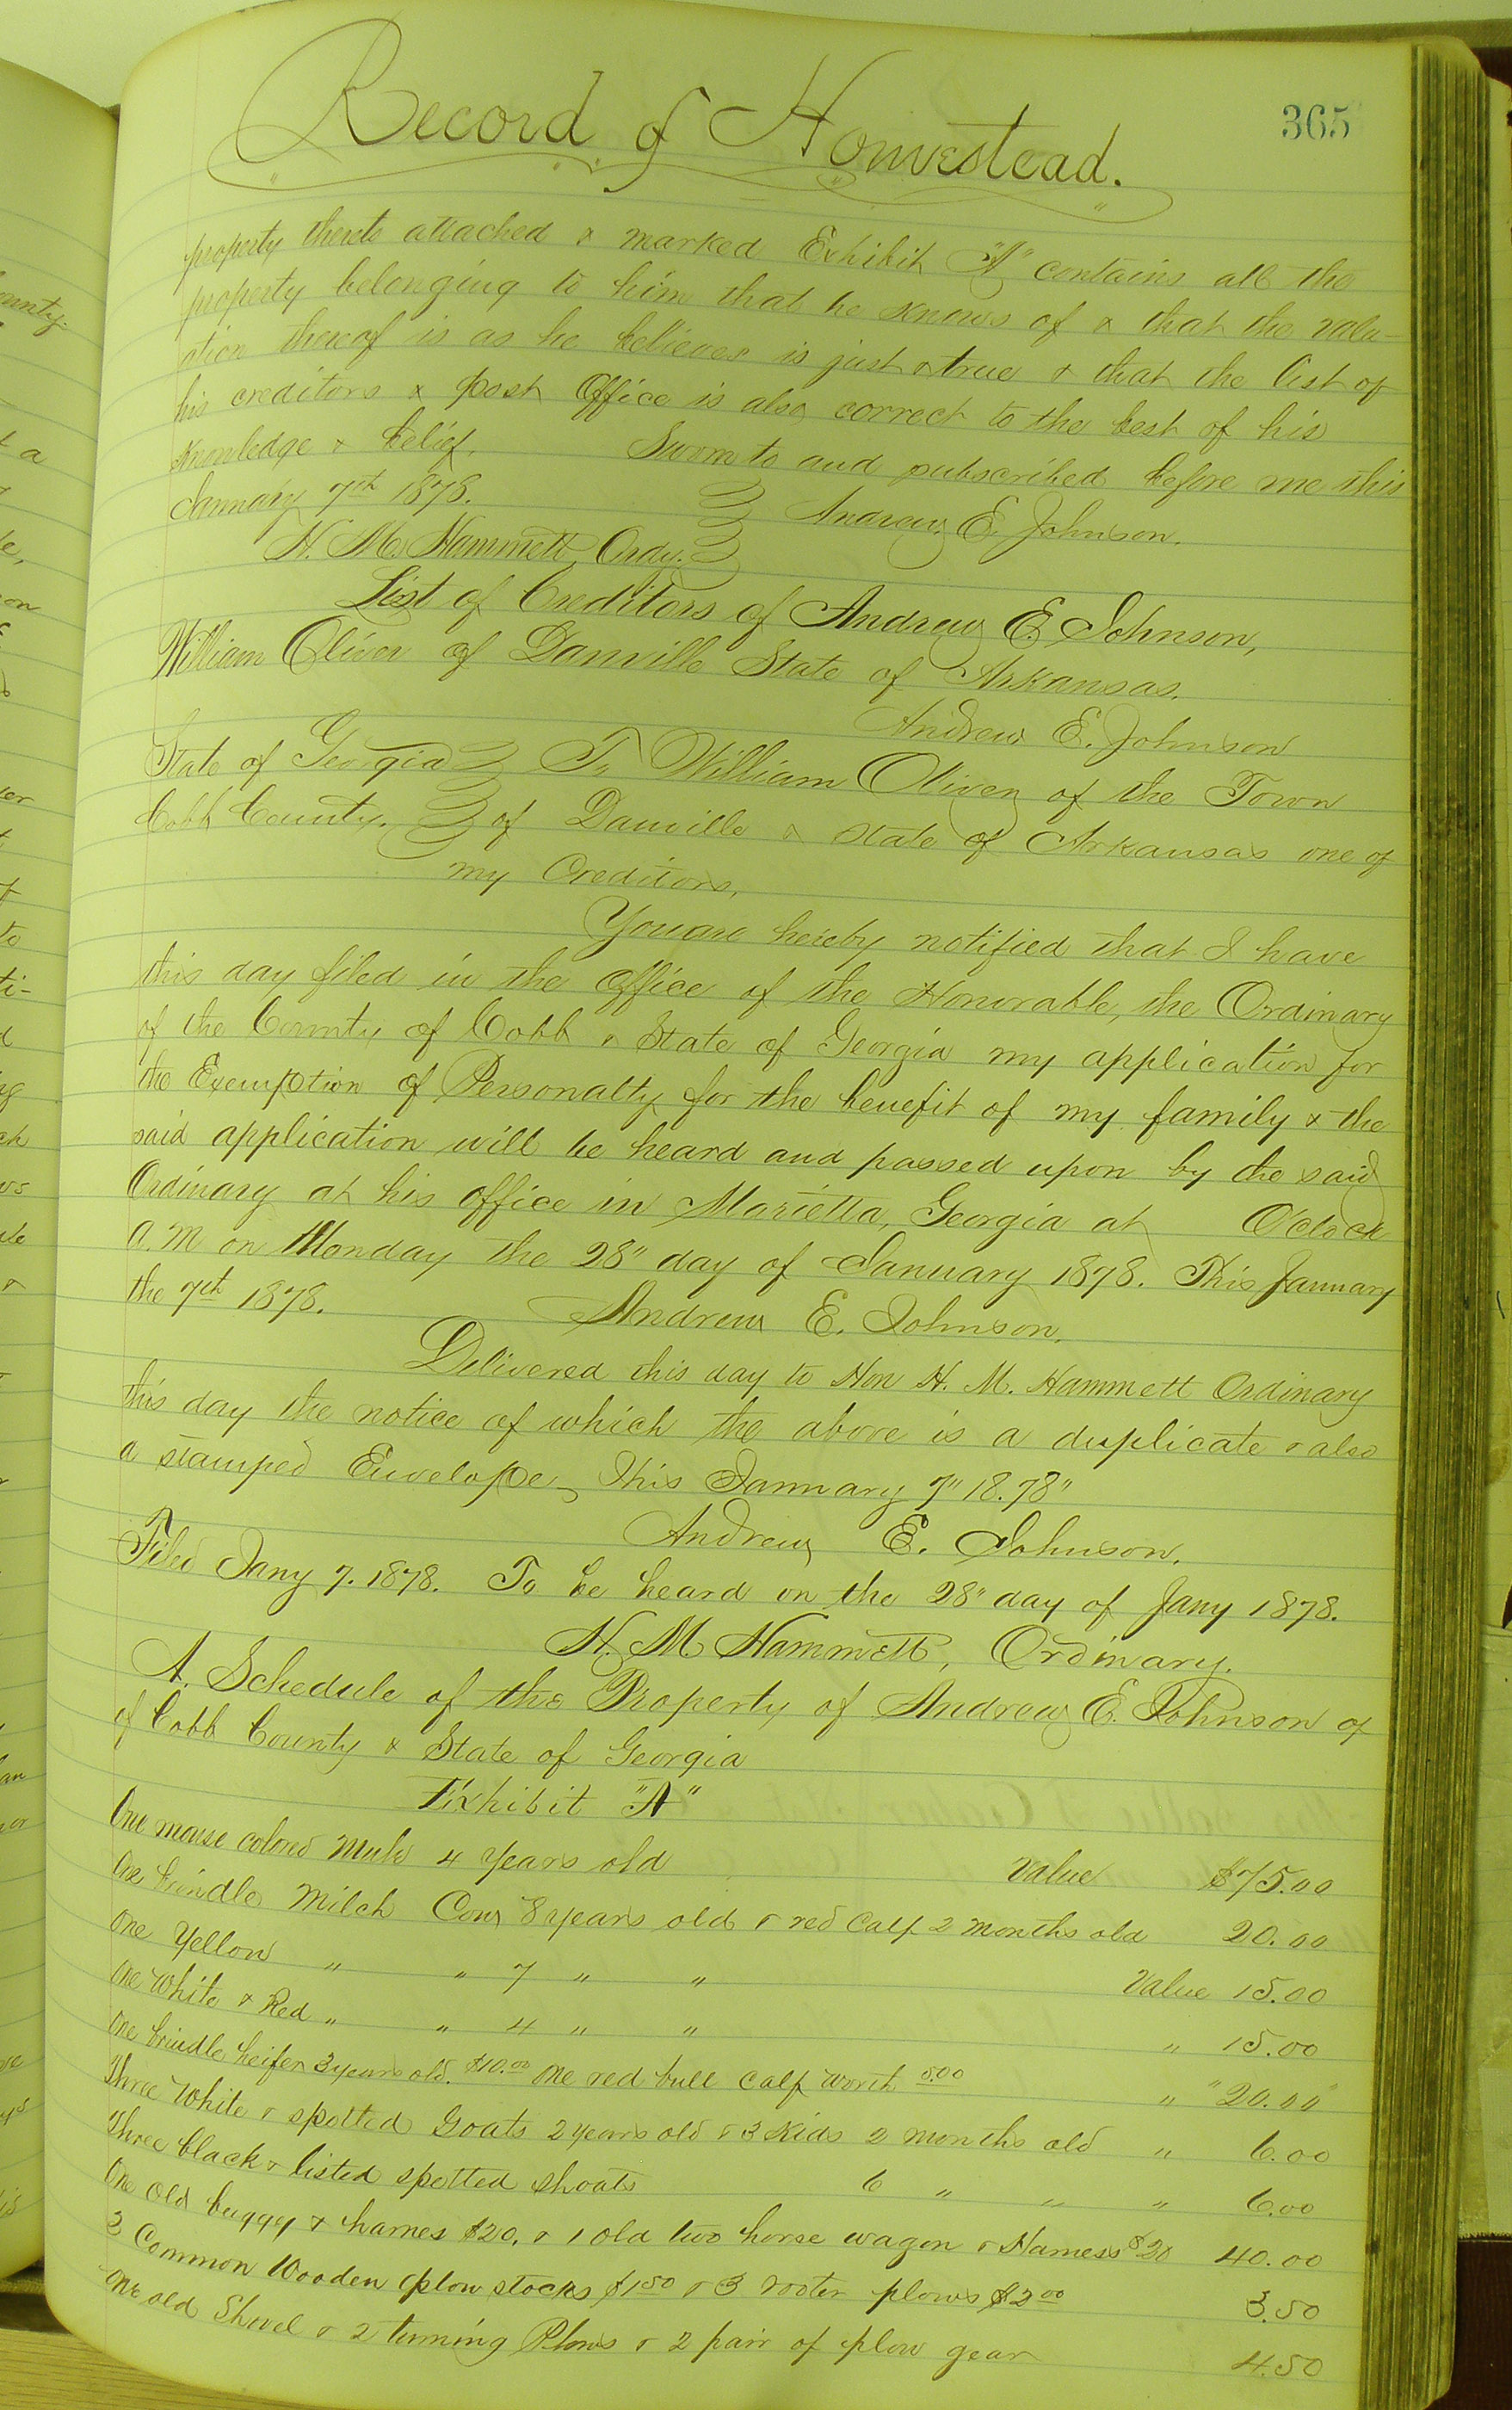 365
Record of Homestead.
property thereto attached & marked Exhibit "A" contains all the
property belonging to him that he knows of & that the valu-
ation thereof is as he believes is just & true & that the list of
his creditors & post Office is also correct to the best of his
knowledge & belief. Sworn to and subscribed before me this
January 7th 1878. Andrew E. Johnson.
H. M. Hammett Ordy.
List of Creditors of Andrew E. Johnson,
William Oliver of Danville State of Arkansas.
Andrew E. Johnson
State of Georgia To William Oliver of the Town
Cobb County. of Danville & state of Arkansas one of
my Creditors,
You are hereby notified that I have
this day filed in the Office of the Honorable, the Ordinary
of the County of Cobb & State of Georgia my application for
the Exemption of Personalty for the benefit of my family & the
said application will be heard and passed upon by the said
Ordinary at his office in Marietta, Georgia at O'clock
A.M on Monday the 28" day of January 1878. This January
the 7th 1878. Andrew E. Johnson.
Delivered this day to Hon H. M. Hammett Ordinary
this day the notice of which the above is a duplicate & also
a stamped Envelope, This January 7" 18.78"
Andrew E. Johnson.
Filed Jany 7. 1878. To be heard on the 28" day of Jany 1878.
H. M. Hammett, Ordinary.
A. Schedule of the Property of Andrew E. Johnson of
of Cobb County & State of Georgia
Exhibit "A"
One mouse colored Mule 4 Years old Value $75.00
One brindle Milch Cow 8 years old & red Calf 2 months old 20.00
One Yellow " " 7 " " Value 15.00
One White & Red " " 4 " " " 15.00
One brindle heifer 3 years old. $10.00 One red bull Calf worth 5.00 " "20.00"
Three White & spotted Goats 2 years old & 3 Kids 2 months old " 6.00
Three black & listed spotted shoats 6 " " " 6.00
One Old buggy & harnes $20. & 1 old two horse wagon & Harness $20 40.00
3 Common Wooden plow stocks $1.50 & 3 rooter plows $2.00 3.50
One old Shovel & 2 turning Plows & 2 pair of plow gear 4.50